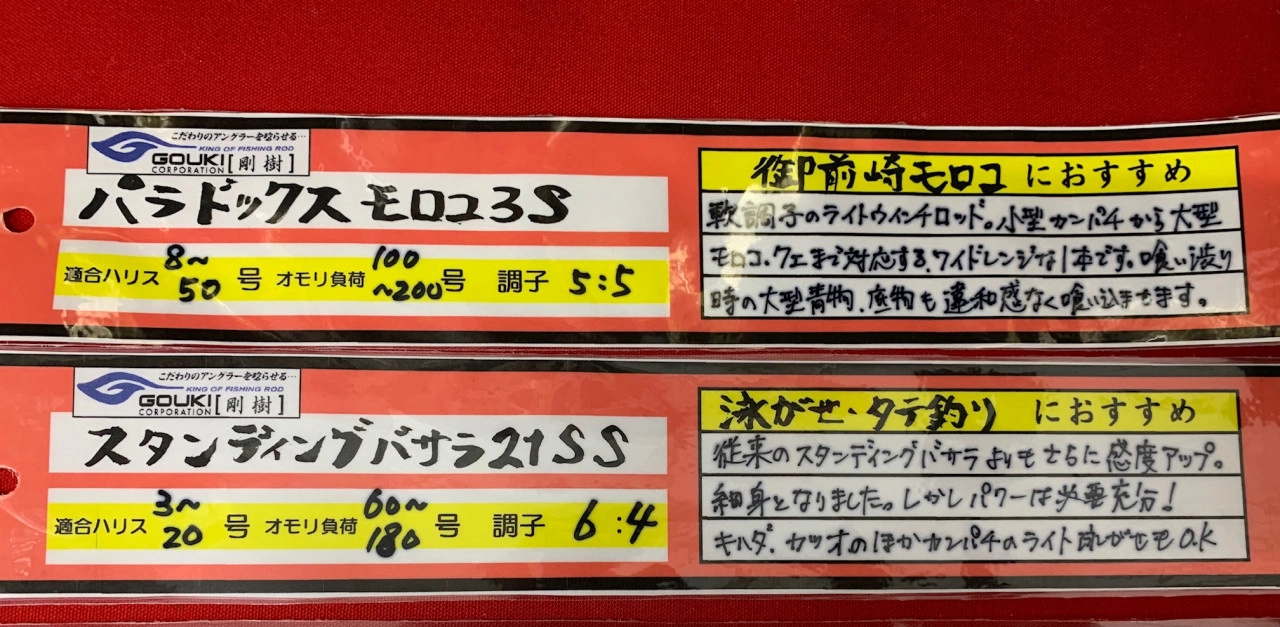 こだわりのアングラーを唸らせる…
KING OF FISHING ROD
GOUKI
CORPORATION [剛樹]
パラドックスモロコ3S
適合ハリス 8~50号 オモリ負荷 100~200号 調子 5:5
御前崎モロコ におすすめ
軟調子のライトウインチロッド。小型カンパチから大型
モロコ.クエまで対応する、ワイドレンジな1本です。喰い渋り
時の大型青物、底物も違和感なく喰い込ませます。
こだわりのアングラーを唸らせる…
KING OF FISHING ROD
GOUKI
CORPORATION [剛樹]
スタンディングバサラ21SS
適合ハリス 3~20号 オモリ負荷 60~180号 調子 6:4
泳がせ・タテ釣り におすすめ
従来のスタンディングバサラよりもさらに感度アップ。
細身となりました。しかしパワーは必要充分!
キハダ、カツオのほかカンパチのライト泳がせもO.K